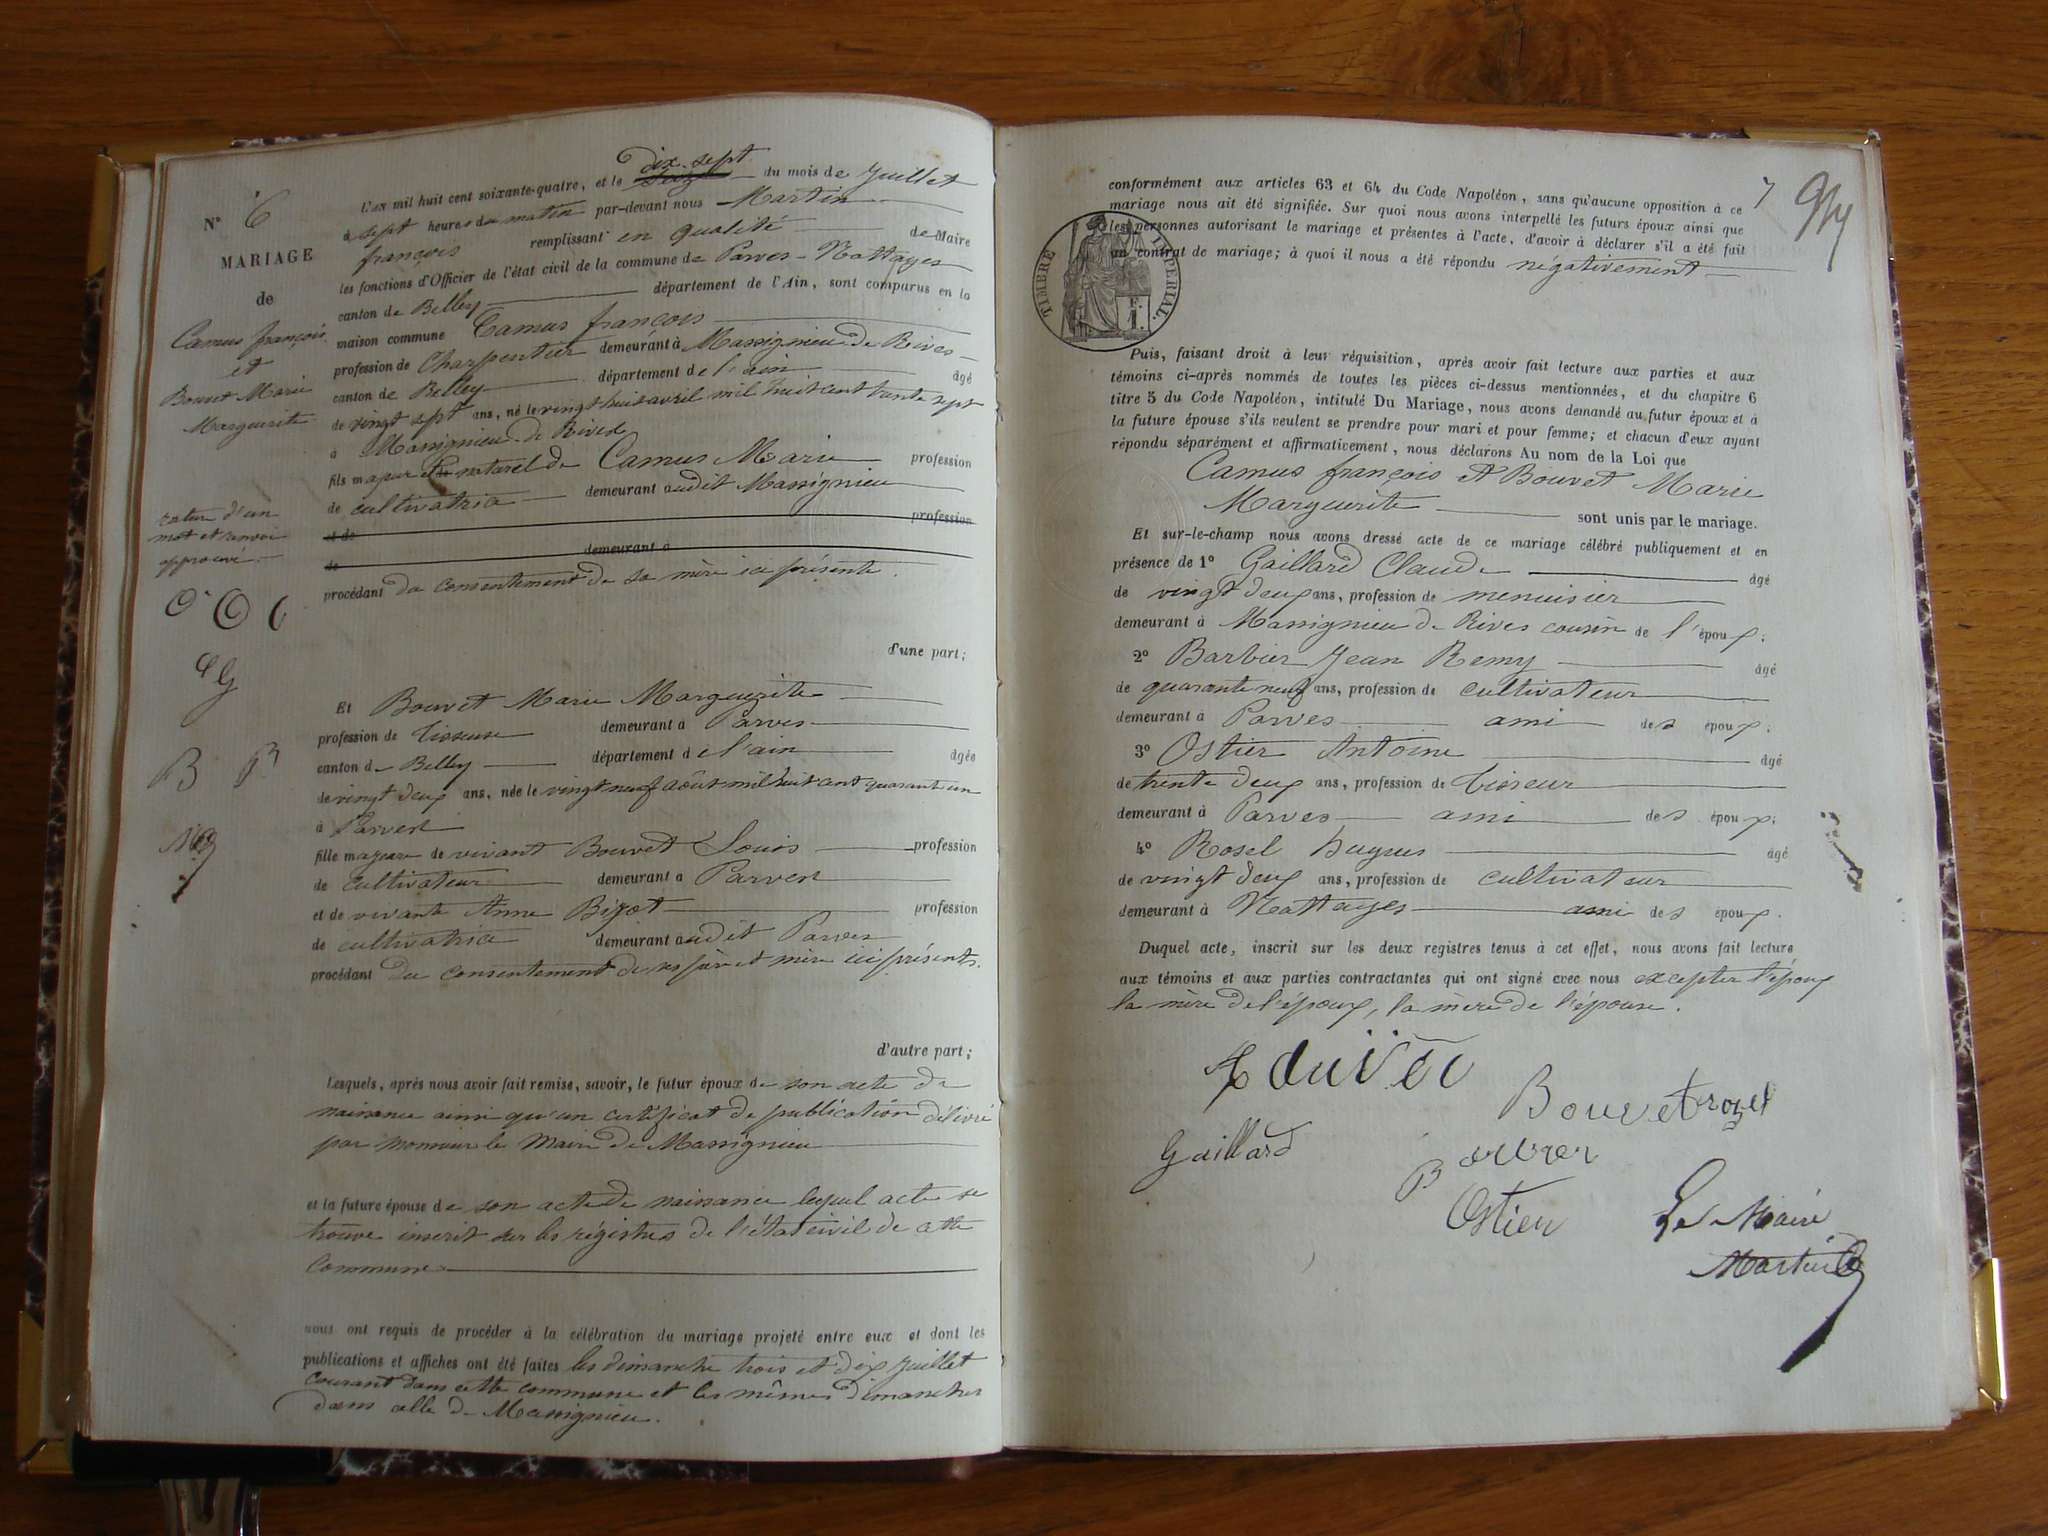 N° 6
MARIAGE
de
Camus françois
et
Bouvet Marie
Marguerite
L'AN mil huit cent soixante-quatre, et le dix-sept du mois de Juillet
à sept heures du matin par-devant nous Martin
françois remplissant en qualité de Maire
les fonctions d'Officier de l'état civil de la commune de Parves-Nattages
canton de Belley département de l'Ain, sont comparus en la
maison commune Camus françois
profession de Charpentier demeurant à Massignieu de Rives
canton de Belley département de l'ain âgé
de vingt sept ans, né le vingt huit avril mil huit cent trente sept
à Massignieu de Rives
fils majeur et naturel de Camus Marie profession
de cultivatrice demeurant audit Massignieu
et de profession
de demeurant à
rature d'un
mot et renvoi
approuvé.
procédant du consentement de sa mère ici présente.
d'une part;
Et Bouvet Marie Marguerite
profession de tisseuse demeurant à Parves
canton de Belley département de l'ain âgée
de vingt deux ans, née le vingt neuf août mil huit cent quarante un
à Parves
fille majeure de vivant Bouvet Louis profession
de cultivateur demeurant à Parves
et de vivante Anne Bizot profession
de cultivatrice demeurant audit Parves
procédant du consentement de ses père et mère ici présents.
d'autre part;
Lesquels, après nous avoir fait remise, savoir, le futur époux de son acte de
naissance ainsi qu'un certificat de publication délivré
par monsieur le Maire de Massignieu
et la future épouse de son acte de naissance lequel acte se
trouve inscrit sur les régistres de l'état civil de cette
Commune
nous ont requis de procéder à la célébration du mariage projeté entre eux et dont les
publications et affiches ont été faites les dimanche trois et dix juillet
courant dans cette commune et les mêmes dimanches
dans celle de Massignieu.
7
conformément aux articles 63 et 64 du Code Napoléon, sans qu'aucune opposition à ce
mariage nous ait été signifiée. Sur quoi nous avons interpellé les futurs époux ainsi que
les personnes autorisant le mariage et présentes à l'acte, d'avoir à déclarer s'il a été fait
un contrat de mariage; à quoi il nous a été répondu négativement
TIMBRE IMPERIAL
Puis, faisant droit à leur réquisition, après avoir fait lecture aux parties et aux
témoins ci-après nommés de toutes les pièces ci-dessus mentionnées, et du chapitre 6
titre 5 du Code Napoléon, intitulé Du Mariage, nous avons demandé au futur époux et à
la future épouse s'ils veulent se prendre pour mari et pour femme; et chacun d'eux ayant
répondu séparément et affirmativement, nous déclarons Au nom de la Loi que
Camus françois et Bouvet Marie
Marguerite sont unis par le mariage.
Et sur-le-champ nous avons dressé acte de ce mariage célébré publiquement et en
présence de 1° Gaillard Claude âgé
de vingt deux ans, profession de menuisier
demeurant à Massignieu de Rives cousin de l'époux;
2° Barbier Jean Remy âgé
de quarante neuf ans, profession de cultivateur
demeurant à Parves ami des époux;
3° Ostier Antoine âgé
de trente deux ans, profession de tisseur
demeurant à Parves ami des époux;
4° Rosel hugues âgé
de vingt deux ans, profession de cultivateur
demeurant à Nattages ami des époux.
Duquel acte, inscrit sur les deux registres tenus à cet effet, nous avons fait lecture
aux témoins et aux parties contractantes qui ont signé avec nous excepter l'époux
la mère de l'époux, la mère de l'épouse.
Bouvet rozel
Gaillard
Ostier
Le Maire
Martin